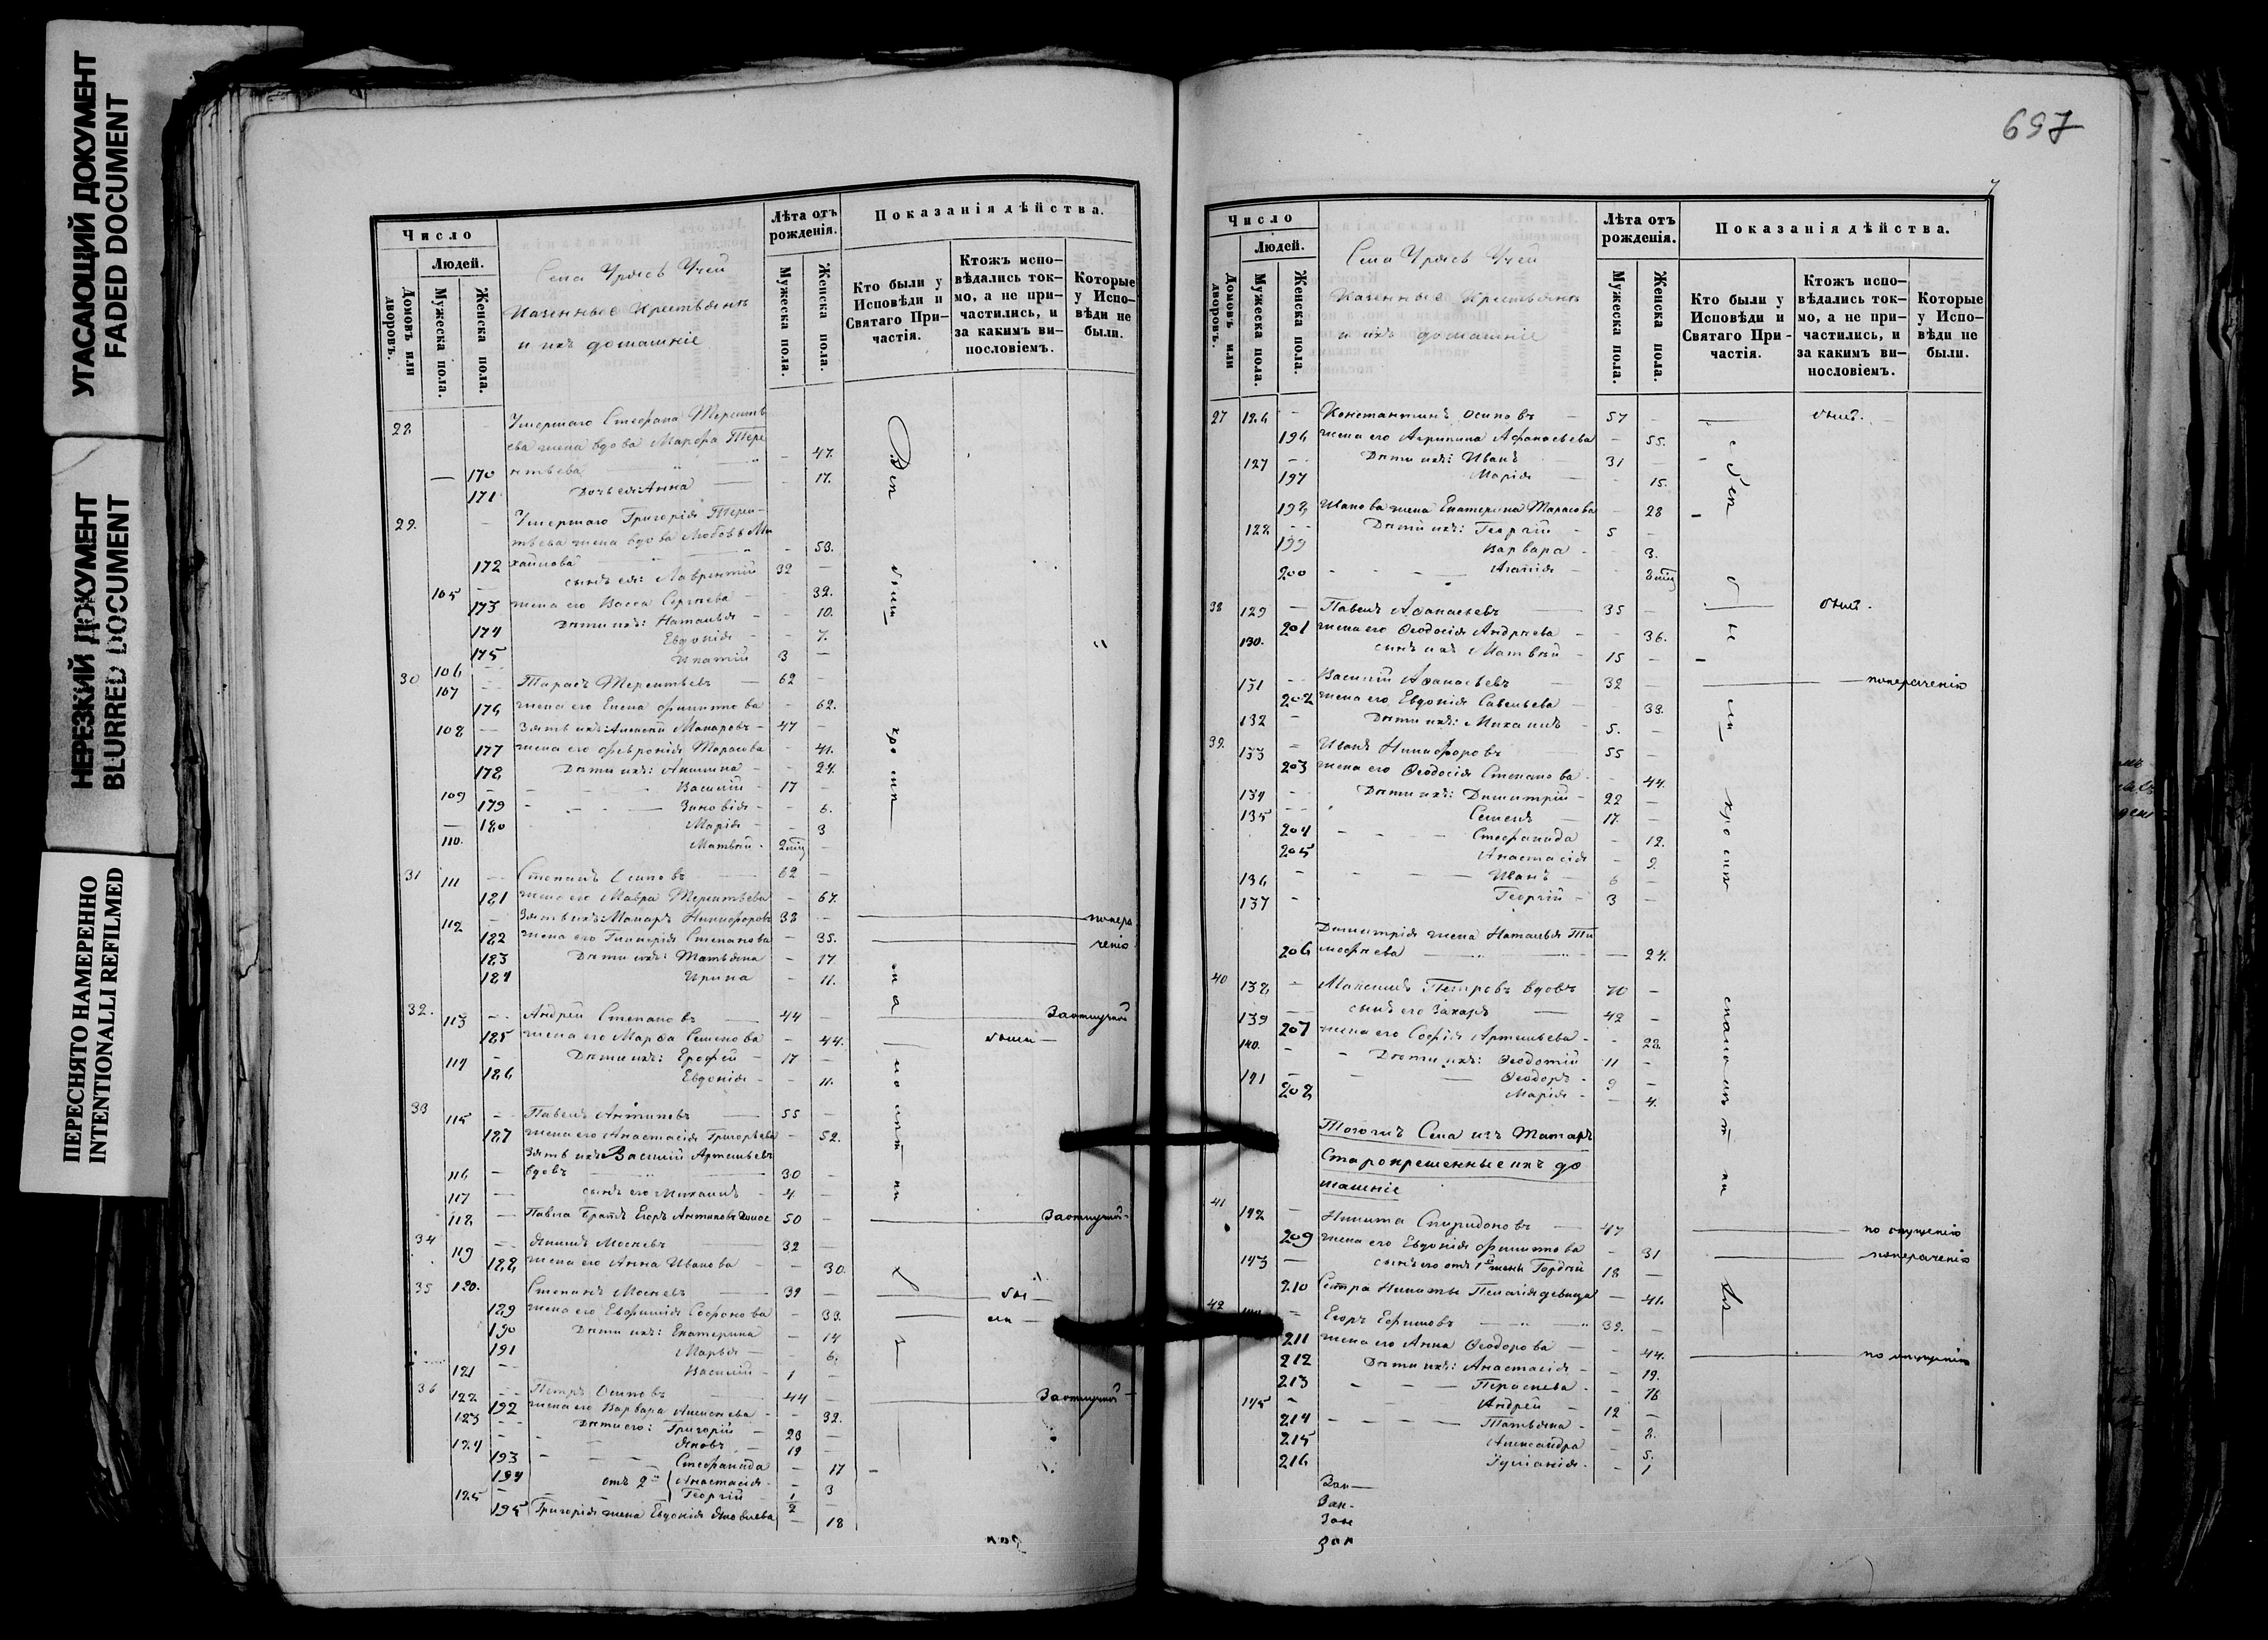 УГАСАЮЩИЙ ДОКУМЕНТ
FADED DOCUMENT
НЕРЕЗКИЙ ДОКУМЕНТ
BLURRED DOCUMENT
ПЕРЕСНЯТО НАМЕРЕННО
INTENTIONALLI REFILMED
Число
Людей.
Домовъ или дворовъ.
Мужеска пола.
Женска пола.
Села Урясь Учей
Казенные Крестьяне
и ихъ домашніе
Лѣта отъ рожденія.
Мужеска пола.
Женска пола.
Показанія дѣйства.
Кто были у Исповѣди и Святаго При-частія.
Ктожъ испо-вѣдались ток-мо, а не при-частились, и за какимъ ви-нословіемъ.
Которые у Испо-вѣди не были.
28 Умершаго Стефана Терентъ
ева жена вдова Марфа Тере
— 170 нтьева — 47.
171 Дочь ея: Анна — 17.
29. Умершаго Григорія Терен-
тьева жена вдова Любовь Ми
172 хайлова — 53.
105 сынъ ея: Лаврентій 32 —
173 жена его Васса Сергѣева — 32.
174 Дѣти ихъ: Наталья — 10.
175 Евдокія — 7.
106 Игнатій 3 —
30 107 Тарасъ Терентьевъ 62 —
176 жена его Елена Филиппова — 62.
108 Зять ихъ: Алексѣй Макаровъ 47
177 жена его Февронія Тарасова — 41.
178 Дѣти ихъ: Акилина — 24.
109 Василій 17 —
179 Зиновія — 6.
180 Марія — 3
110. Матвѣй 2 мѣс
31 111 Степанъ Осиповъ 62 —
181 жена его Мавра Терентьева — 67.
112 Зять ихъ: Макаръ Никифоровъ 38 — по нера
182 жена его Гликерія Степанова — 35. ченію
183 Дѣти ихъ: Татьяна — 17
184 Ирина — 11.
32. 113 Андрей Степановъ 44 — За отлучкой
185 жена его Марѳа Семенова — 44. были
114 Дѣти ихъ: Ерофей 17 —
186 Евдокія — 11.
33 115 Павелъ Антиповъ 55 —
187 жена его Анастасія Григорьева — 52.
Зять ихъ Василій Артемьевъ
116 вдовъ 30 —
117 сынъ его Михаилъ 4. —
118 Павла братъ Егоръ Антиповъ 50 — За отлучкой
34 119 Акимъ Мосѣевъ 32 —
188 жена его Анна Иванова — 30.
35 120. Степанъ Мосѣевъ 39 — бы
189 жена его Евфимія Софронова — 33. ли
190 Дѣти ихъ: Екатерина — 14
191 Марья — 6.
121 Василій 1 —
36 122 Петръ Осиповъ 44 — За отлучкой
192 жена его Варвара Алексѣева — 32.
123 Дѣти его: Григорій 23 —
124 Яковъ 19 —
193 Стефанида — 17
194 отъ 2й Анастасія — 3
125 Георгій ½
195 Григорія жена Евдокія Яковлева — 18
697
7
Число
Людей.
Домовъ или дворовъ.
Мужеска пола.
Женска пола.
Села Урясь Учей
Казенные Крестьяне
и ихъ домашніе
Лѣта отъ рожденія.
Мужеска пола.
Женска пола.
Показанія дѣйства.
Кто были у Исповѣди и Святаго При-частія.
Ктожъ испо-вѣдались ток-мо, а не при-частились, и за какимъ ви-нословіемъ.
Которые у Испо-вѣди не были.
27 126 Константинъ Осиповъ 57 —
196 жена его Агрипина Афанасьева — 55.
127 Дѣти ихъ: Иванъ 31 —
197 Марія — 15.
198 Иванова жена Екатерина Тарасова — 28
128 Дѣти ихъ: Георгій 5 —
199 Варвара — 3.
200 Агапія — 8 мѣс
38 129 Павелъ Аѳанасьевъ 35 —
201 жена его Ѳеодосія Андреева — 36.
130. сынъ ихъ Матвѣй 15 —
131 Василій Аѳанасьевъ 32 — по нераченію
202 жена его Евдокія Савельева — 33.
132 Дѣти ихъ: Михаилъ 5. —
39. 133 Иванъ Никифоровъ 55 —
203 жена его Ѳеодосія Степанова — 44.
134 Дѣти ихъ: Димитрій 22 —
135 Семенъ 17. —
204 Стефанида — 12.
205 Анастасія — 9.
136 Иванъ 6 —
137 Георгій 3 —
Димитрія жена Наталья Ти
206 мофеева — 24.
40 138 Максимъ Петровъ вдовъ 70 —
139 сынъ его Захаръ 42 —
207 жена его Софія Артемьева — 28.
140. Дѣти ихъ: Ѳеодотій 11 —
141 Ѳеодоръ 9 —
208 Марія — 4.
Тогожъ Села изъ Татаръ
Старокрещенные ихъ до
машніе
41 142 Никита Спиридоновъ 47 — по опущенію
209 жена его Евдокія Филиппова — 31 по нераченію
143 сынъ его отъ 1й жены Гордѣй 18 —
210 Сестра Никиты Пелагія девица — 41.
42 Егоръ Ефимовъ 39. —
211 жена его Анна Ѳеодорова — 44. по опущенію
212 Дѣти ихъ: Анастасія — 19.
213 Параскева — 16
145 Андрей 12 —
214 Татьяна — 8.
215 Александра — 5.
216 Іуліанія — 1
Зак
Зак